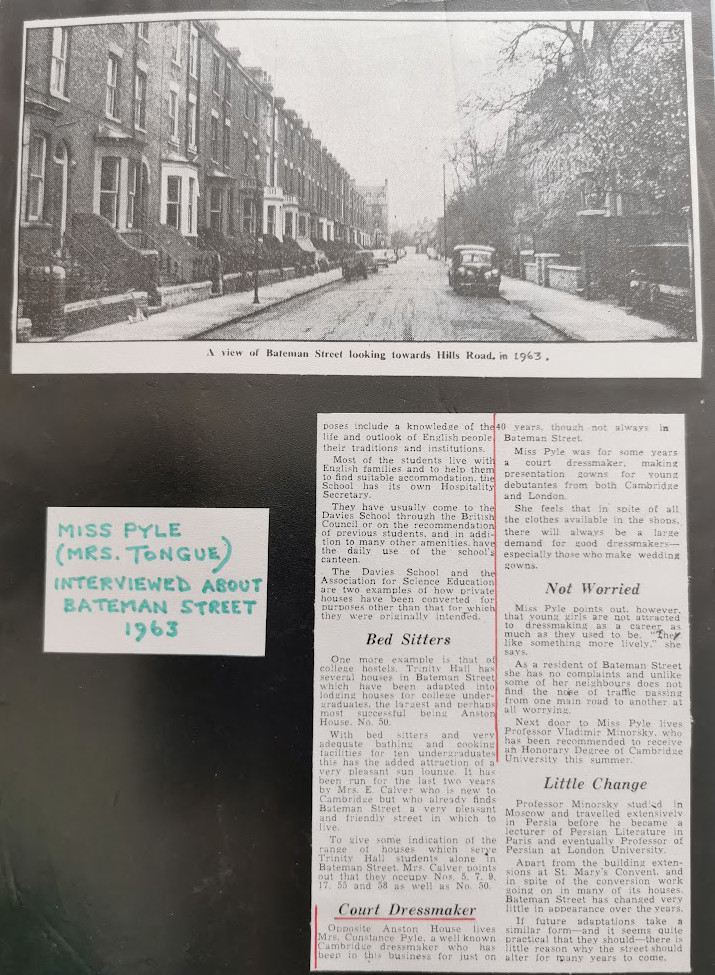 A view of Bateman Street looking towards Hills Road. in 1963.
MISS PYLE
(MRS. TONGUE)
INTERVIEWED ABOUT
BATEMAN STREET
1963
poses include a knowledge of the
life and outlook of English people
their traditions and institutions.
Most of the students live with
English families and to help them
to find suitable accommodation, the
School has its own Hospitality
Secretary.
They have usually come to the
Davies School through the British
Council or on the recommendation
of previous students, and in addi-
tion to many other amenities, have
the daily use of the school's
canteen.
The Davies School and the
Association for Science Education
are two examples of how private
houses have been converted for
purposes other than that for which
they were originally intended.
Bed Sitters
One more example is that of
college hostels. Trinity Hall has
several houses in Bateman Street
which have been adapted into
lodging houses for college under-
graduates, the largest and perhaps
most successful being Anston
House, No. 50.
With bed sitters and very
adequate bathing and cooking
facilities for ten undergraduates
this has the added attraction of a
very pleasant sun lounge. It has
been run for the last two years
by Mrs. E. Calver who is new to
Cambridge but who already finds
Bateman Street a very pleasant
and friendly street in which to
live.
To give some indication of the
range of houses which serve
Trinity Hall students alone in
Bateman Street, Mrs. Calver points
out that they occupy Nos. 5, 7, 9,
17, 55 and 58 as well as No. 50.
Court Dressmaker
Opposite Anston House lives
Mrs. Constance Pyle, a well known
Cambridge dressmaker who has
been in this business for just on
40 years, though not always in
Bateman Street.
Miss Pyle was for some years
a court dressmaker, making
presentation gowns for young
debutantes from both Cambridge
and London.
She feels that in spite of all
the clothes available in the shops,
there will always be a large
demand for good dressmakers—
especially those who make wedding
gowns.
Not Worried
Miss Pyle points out, however,
that young girls are not attracted
to dressmaking as a career as
much as they used to be. "They
like something more lively," she
says.
As a resident of Bateman Street
she has no complaints and unlike
some of her neighbours does not
find the noise of traffic passing
from one main road to another at
all worrying.
Next door to Miss Pyle lives
Professor Vladimir Minorsky, who
has been recommended to receive
an Honorary Degree of Cambridge
University this summer.
Little Change
Professor Minorsky studied in
Moscow and travelled extensively
in Persia before he became a
lecturer of Persian Literature in
Paris and eventually Professor of
Persian at London University.
Apart from the building exten-
sions at St. Mary's Convent, and
in spite of the conversion work
going on in many of its houses,
Bateman Street has changed very
little in appearance over the years.
If future adaptations take a
similar form—and it seems quite
practical that they should—there is
little reason why the street should
alter for many years to come.